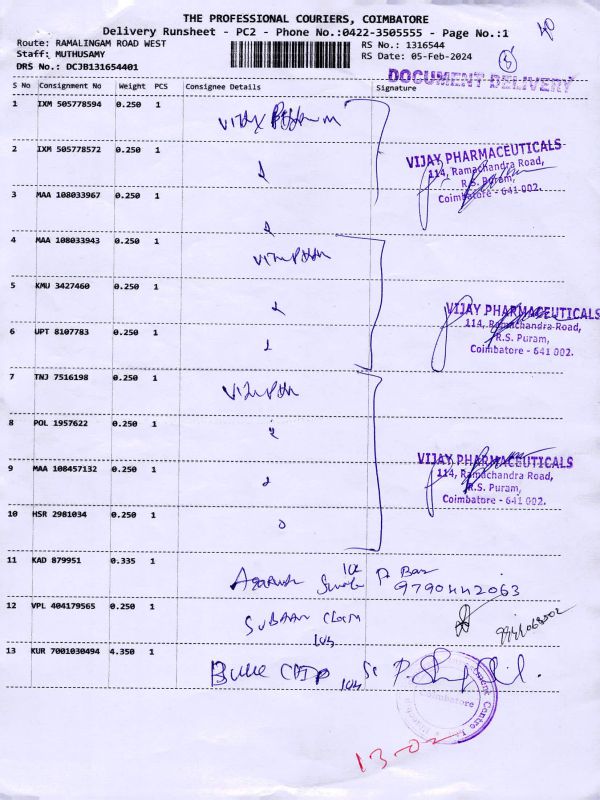 THE PROFESSIONAL COURIERS, COIMBATORE
Delivery Runsheet - PC2 - Phone No.:0422-3505555 - Page No.:1
Route: RAMALINGAM ROAD WEST
Staff: MUTHUSAMY
DRS No.: DCJB131654401
RS No.: 1316544
RS Date: 05-Feb-2024
DOCUMENT DELIVERY
S No Consignment No Weight PCS Consignee Details Signature
1 IXM 505778594 0.250 1
2 IXM 505778572 0.250 1
VIJAY PHARMACEUTICALS
114, Ramachandra Road,
R.S. Puram,
Coimbatore - 641 002.
3 MAA 108033967 0.250 1
4 MAA 108033943 0.250 1
5 KMU 3427460 0.250 1
VIJAY PHARMACEUTICALS
114, Ramachandra Road,
R.S. Puram,
Coimbatore - 641 002.
6 UPT 8107783 0.250 1
7 TNJ 7516198 0.250 1
8 POL 1957622 0.250 1
9 MAA 108457132 0.250 1
VIJAY PHARMACEUTICALS
114, Ramachandra Road,
R.S. Puram,
Coimbatore - 641 002.
10 HSR 2981034 0.250 1
11 KAD 879951 0.335 1
9790442063
12 VPL 404179565 0.250 1
13 KUR 7001030494 4.350 1
Coimbatore